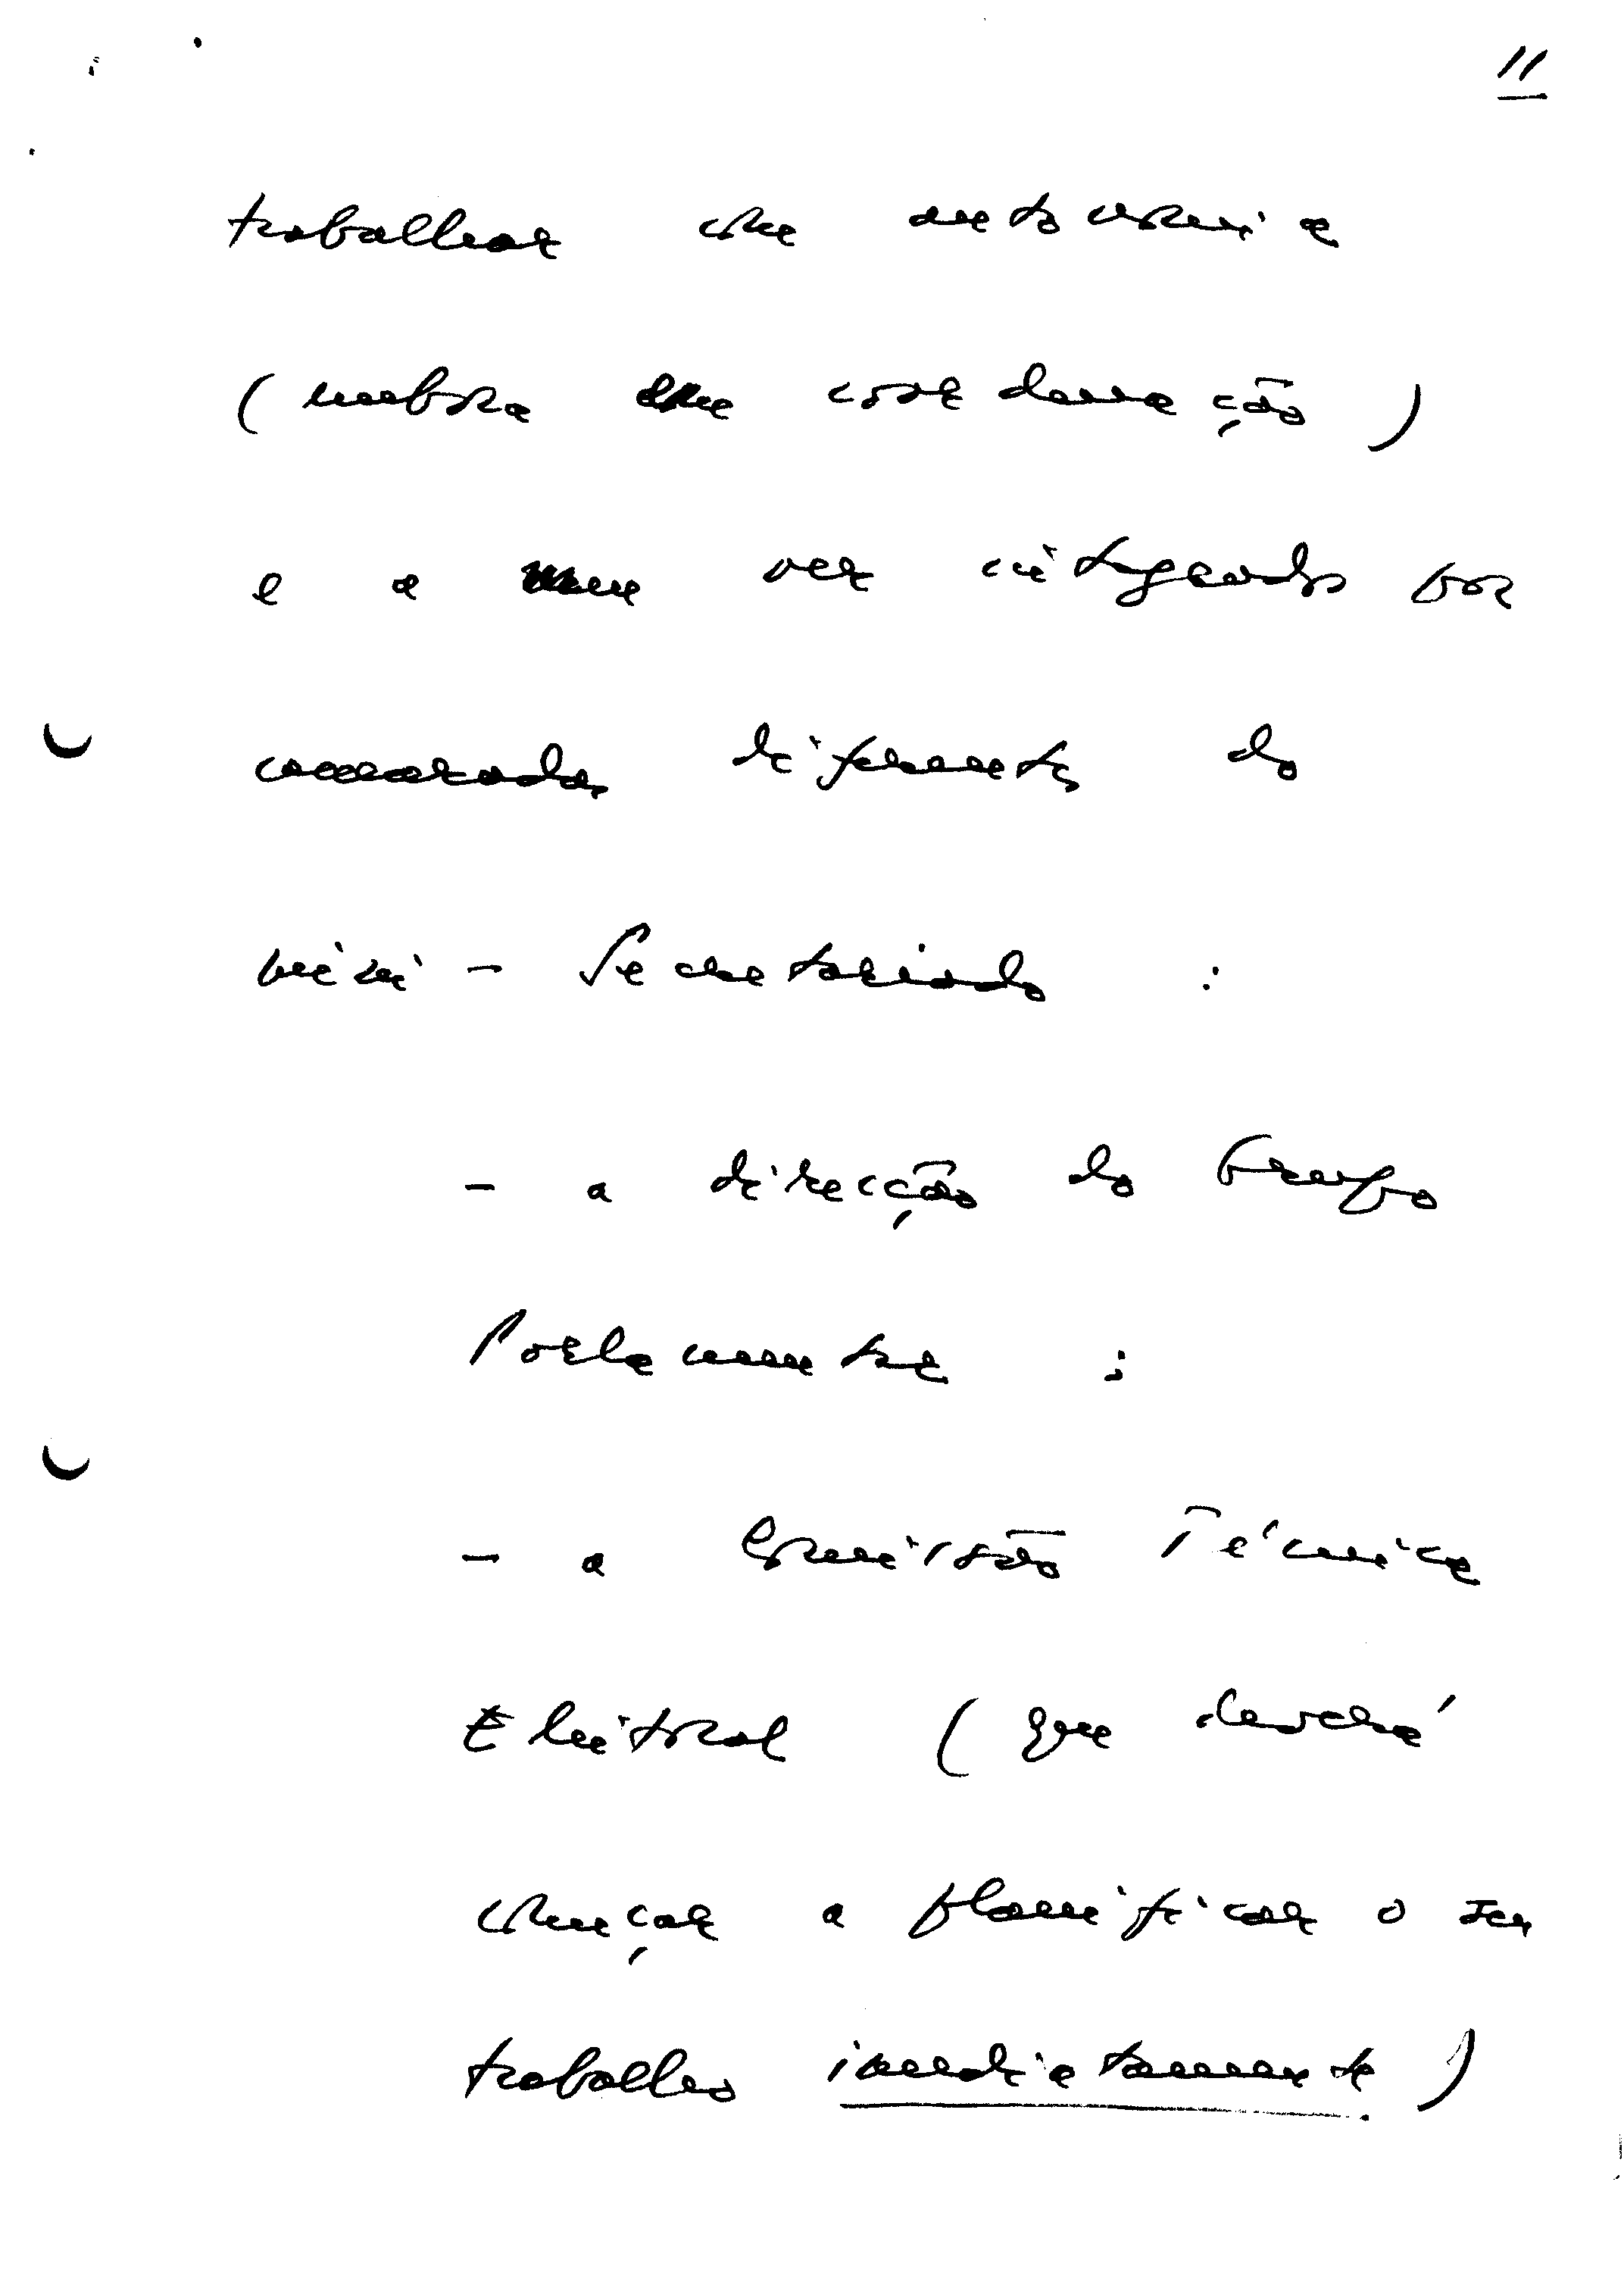 11
trabalhar com autonomia
(embora em coordenação)
e a meu ver integrados por
camaradas diferentes do
mini-Secretariado:
- a direcção do Grupo
Parlamentar;
- a Comissão Técnica
Eleitoral (que deverá
começar a planificar o seu
trabalho imediatamente)